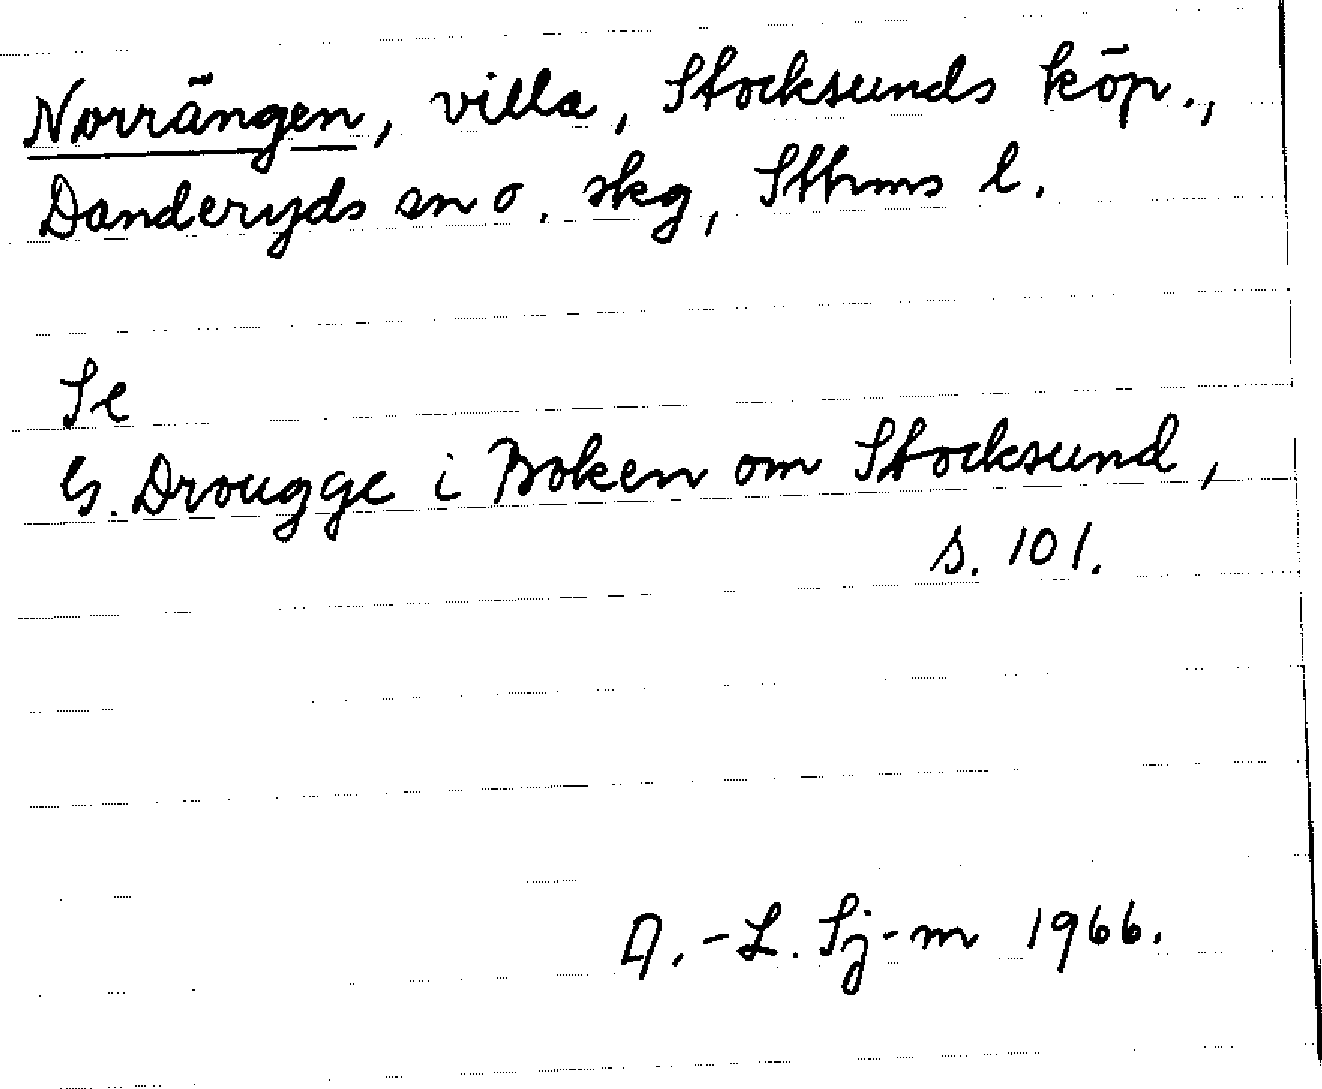 Norrängen, villa, Stocksunds köp.,
Danderyds sn o. skg, Sthms l.
Se
G. Drougge i Boken om Stocksund,
s. 101.
A.-L. Sj-m 1966.